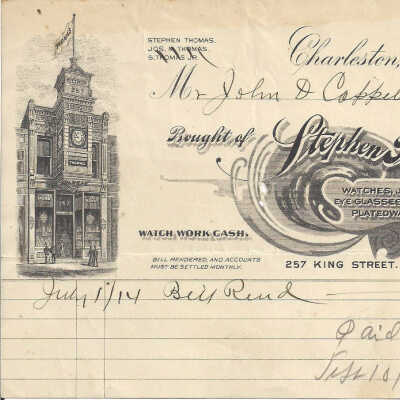 STEPHEN THOMAS.
JOS. M. THOMAS.
S. THOMAS JR.
Charleston,
Mr John D Coppe
Bought of Stephen
WATCHES, J
EYE GLASSES
PLATEDWA
WATCH WORK CASH.
BILL RENDERED, AND ACCOUNTS
MUST BE SETTLED MONTHLY.
257 KING STREET.
July 1/14 Bill Rend
Paid